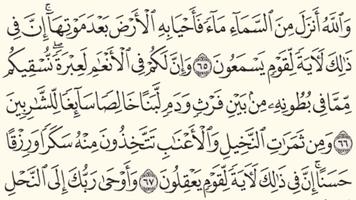 وَاللَّهُ أَنزَلَ مِنَ السَّمَاءِ مَاءً فَأَحْيَا بِهِ الْأَرْضَ بَعْدَ مَوْتِهَا ۚ إِنَّ فِي
ذَٰلِكَ لَآيَةً لِّقَوْمٍ يَسْمَعُونَ ٦٥ وَإِنَّ لَكُمْ فِي الْأَنْعَٰمِ لَعِبْرَةً ۖ نُّسْقِيكُم
مِّمَّا فِي بُطُونِهِ مِن بَيْنِ فَرْثٍ وَدَمٍ لَّبَنًا خَالِصًا سَآئِغًا لِّلشَّٰرِبِينَ
٦٦ وَمِن ثَمَرَٰتِ النَّخِيلِ وَالْأَعْنَٰبِ تَتَّخِذُونَ مِنْهُ سَكَرًا وَرِزْقًا
حَسَنًا ۗ إِنَّ فِي ذَٰلِكَ لَآيَةً لِّقَوْمٍ يَعْقِلُونَ ٦٧ وَأَوْحَىٰ رَبُّكَ إِلَى النَّحْلِ